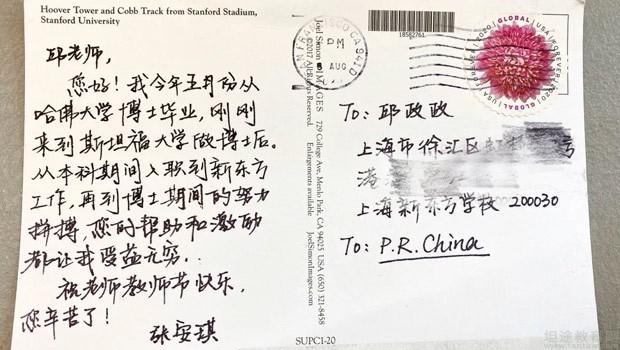 Hoover Tower and Cobb Track from Stanford Stadium,
Stanford University
邱老师,
您好!我今年五月份从
哈佛大学博士毕业,刚刚
来到斯坦福大学做博士后。
从本科期间入职到新东方
工作,再到博士期间的努力
拼搏,您的帮助和激励
都让我受益无穷..
祝老师教师节快乐,
您辛苦了!
张安琪
Joel Simon IMAGES 729 College Ave, Menlo Park, CA 94025 USA (650) 321-8458
©2017 All Rights Reserved. Enlargements available JoelSimonImages.com
SUPCI-20
18582761
SAN FRANCISCO CA 940
PM
AUG
GLOBAL
USA
FOREVER
2020
To: 邱政政
上海市徐汇区虹 号
港
上海新东方学校 200030
To: P.R. China
坦途教育网